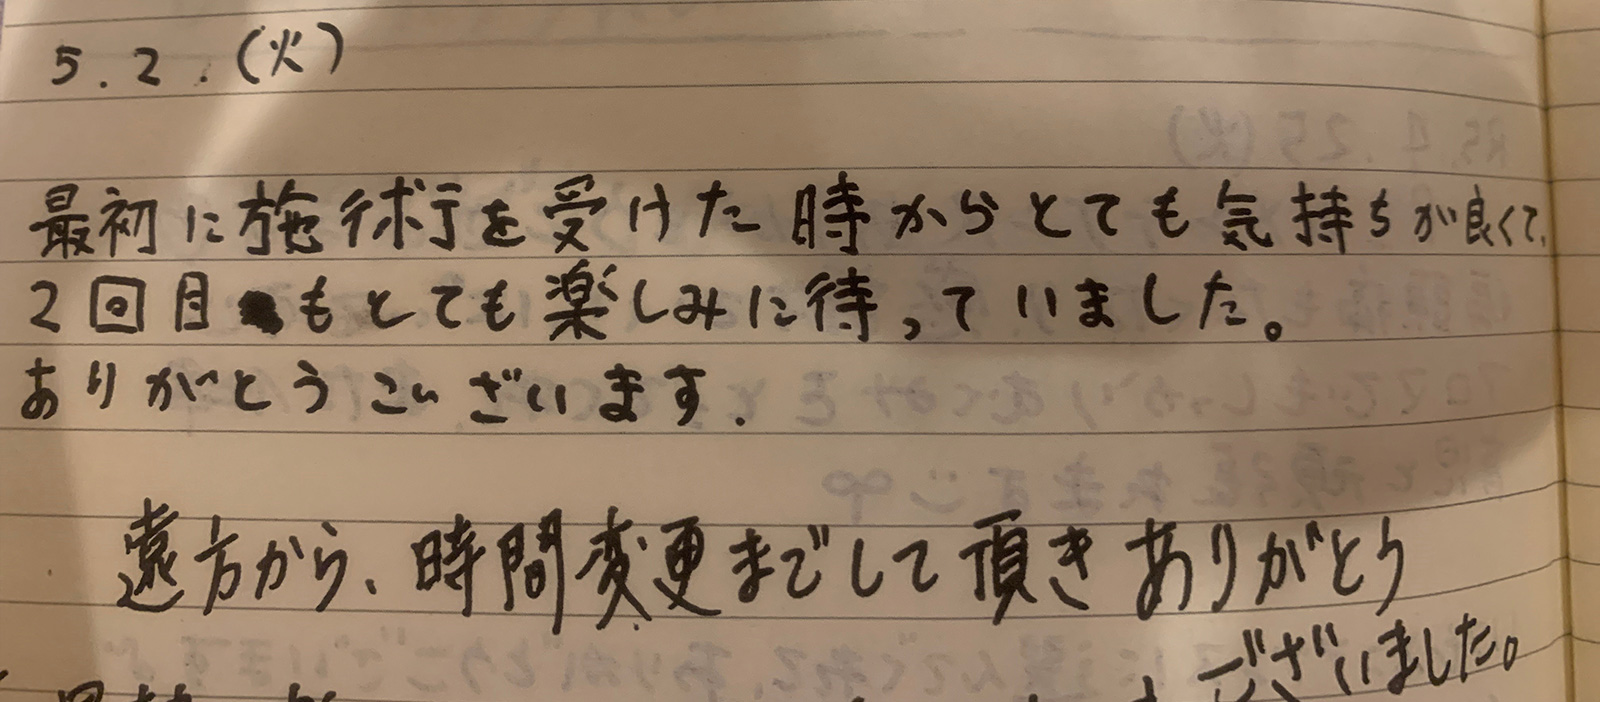 5.2.(火)
最初に施術を受けた時からとても気持ちが良くて、
2回目もとても楽しみに待っていました。
ありがとうございます.
遠方から、時間変更までして頂きありがとう
ございました。